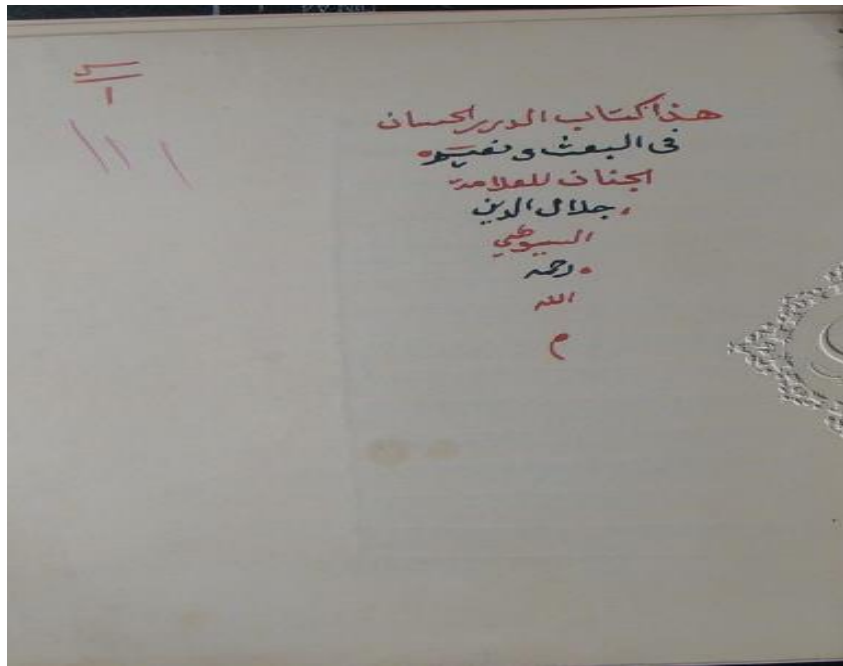 هذا كتاب الدرر الحسان
فى البعث و نعيم
الجنان للعلامة
جلال الدين
السيوطي
رحمه
الله
م
س
١
١١١